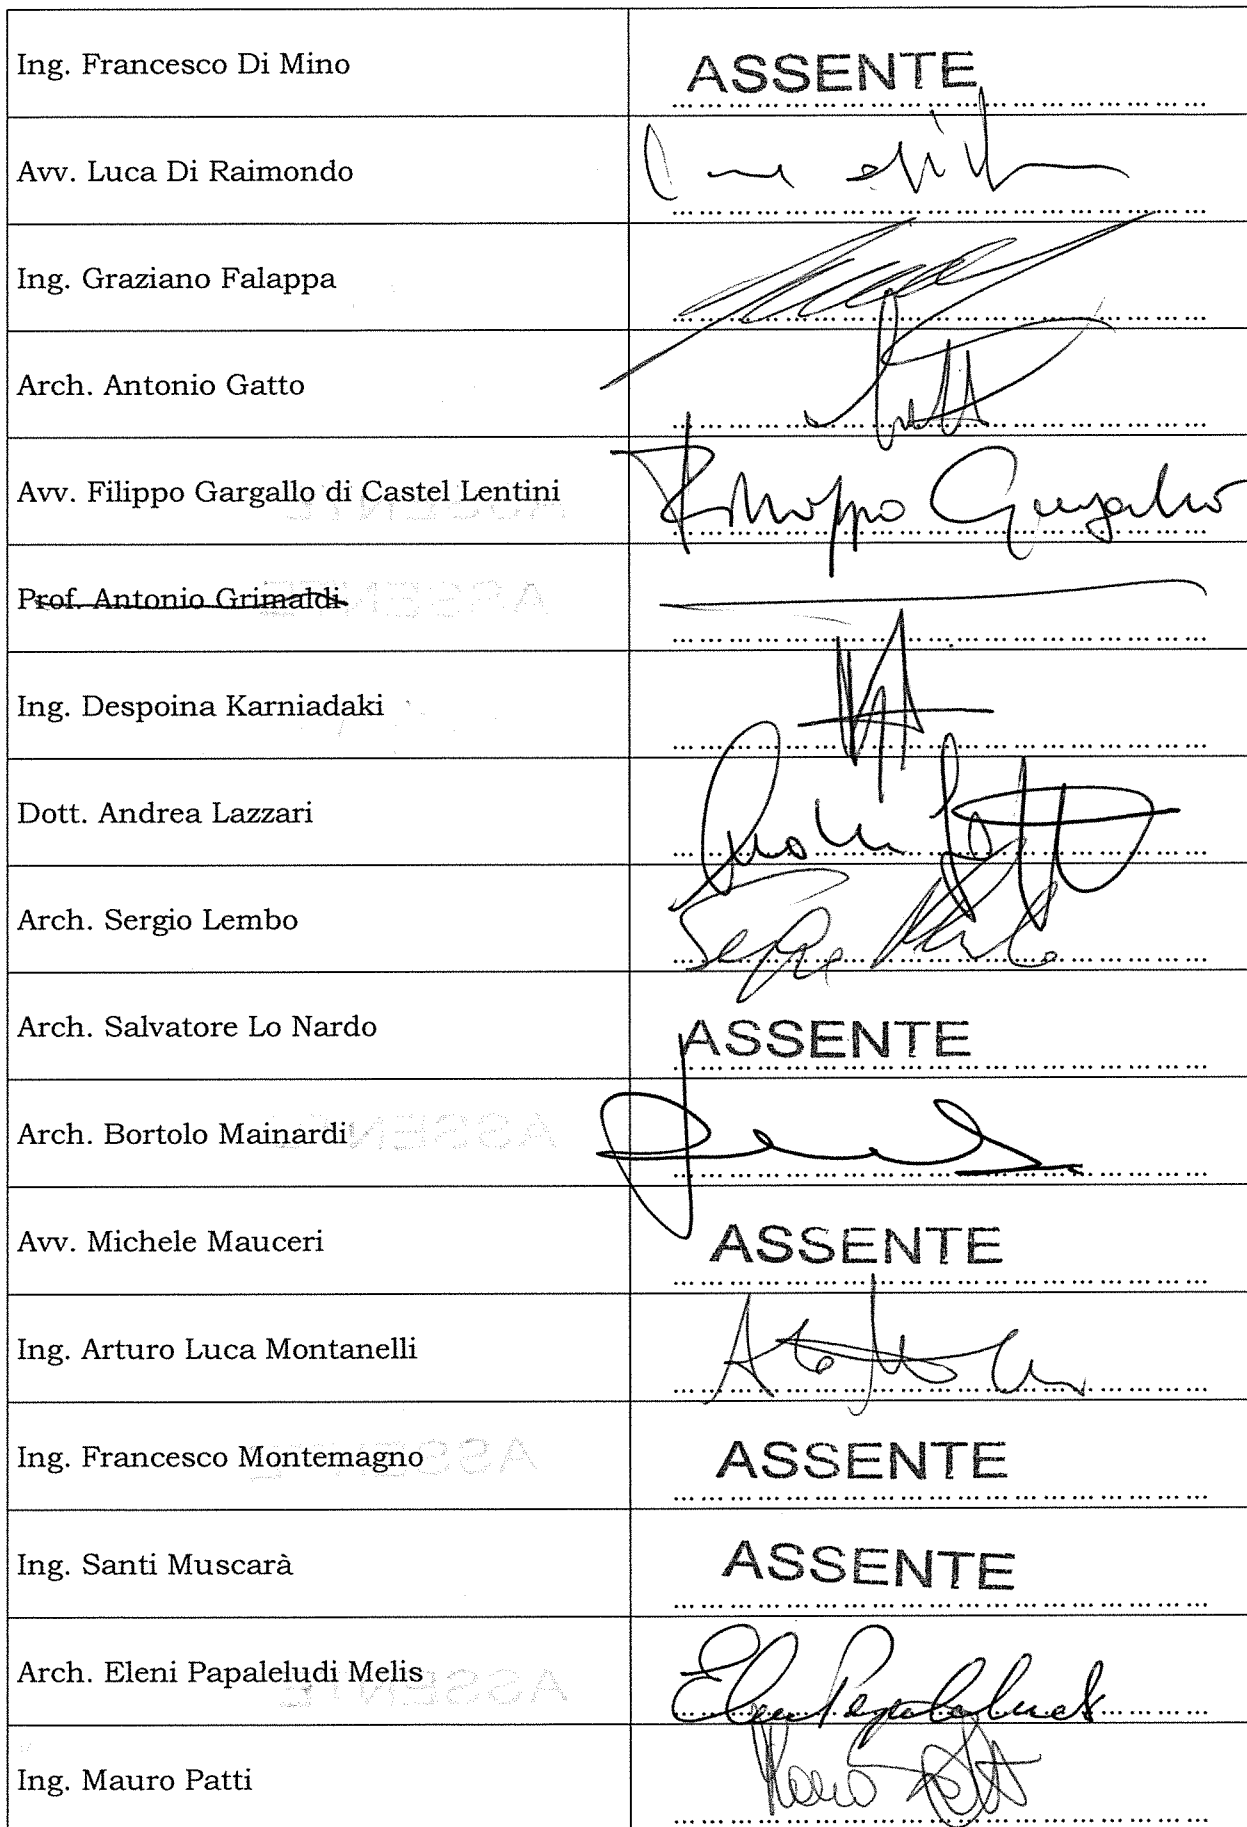 Ing. Francesco Di Mino ASSENTE
Avv. Luca Di Raimondo
Ing. Graziano Falappa
Arch. Antonio Gatto
Avv. Filippo Gargallo di Castel Lentini Filippo Gargallo
Prof. Antonio Grimaldi
Ing. Despoina Karniadaki
Dott. Andrea Lazzari
Arch. Sergio Lembo
Arch. Salvatore Lo Nardo ASSENTE
Arch. Bortolo Mainardi
Avv. Michele Mauceri ASSENTE
Ing. Arturo Luca Montanelli
Ing. Francesco Montemagno ASSENTE
Ing. Santi Muscarà ASSENTE
Arch. Eleni Papaleludi Melis
Ing. Mauro Patti